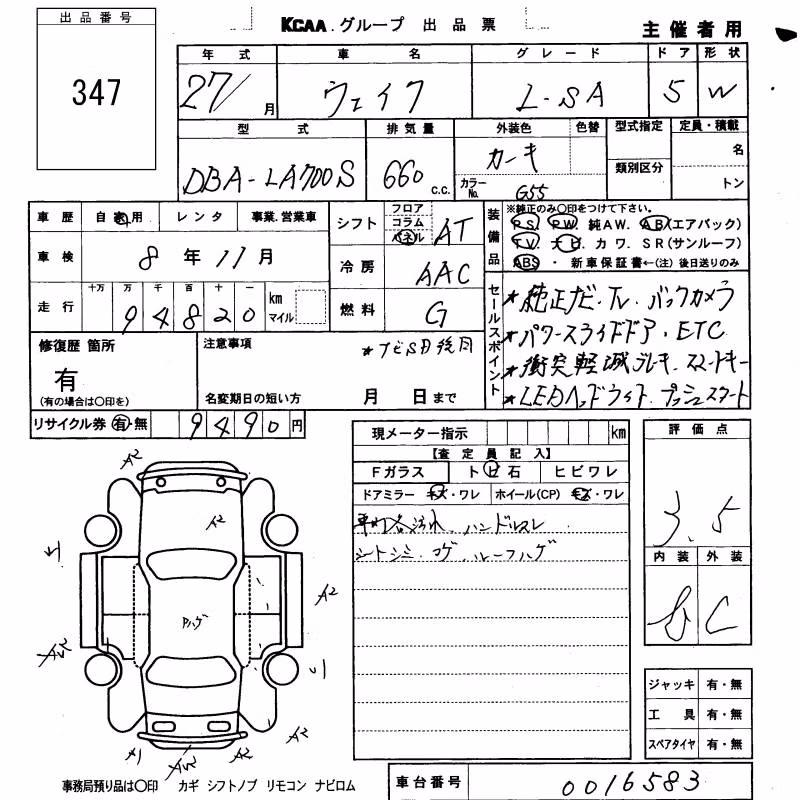 出品番号
347
KCAA グループ 出品票
主催者用
年式 車名 グレード ドア 形状
27/ 月 ウェイク L-SA 5 W
型式 排気量 外装色 色替 型式指定 定員・積載
DBA-LA700S 660 c.c. カーキ 名
カラーNo. G55 類別区分 トン
車歴 自家用 レンタ 事業.営業車
車検 8年11月
走行 十万 万 千 百 十 一
94820 km マイル
シフト フロア コラム パネル AT
冷房 AAC
燃料 G
装備品
※純正のみ〇印をつけて下さい。
P.S. P.W. 純AW. AB(エアバック)
T.V. ナビ カワ. SR(サンルーフ)
ABS ・ 新車保証書←(注) 後日送りのみ
セールスポイント
★純正ナビ・TV. バックカメラ
★パワースライドドア・ETC
★衝突軽減ブレーキ. スマートキー
★LEDヘッドライト. プッシュスタート
修復歴 箇所
有
(有の場合は〇印を)
注意事項
★ナビSD後日
名変期日の短い方 月 日まで
リサイクル券 有・無 9490円
現メーター指示 km
【査定員記入】
Fガラス トビ石 ヒビワレ
ドアミラー キズ・ワレ ホイール(CP) キズ・ワレ
車内各汚れ. ハンドルスレ
シートシミ. コゲ. ルーフハゲ
評価点
3.5
内装 外装
C
A2
A2
A2
Pハゲ
A2
A1
A2
ジャッキ 有・無
工具 有・無
スペアタイヤ 有・無
事務局預り品は〇印 カギ シフトノブ リモコン ナビロム
車台番号 0016583